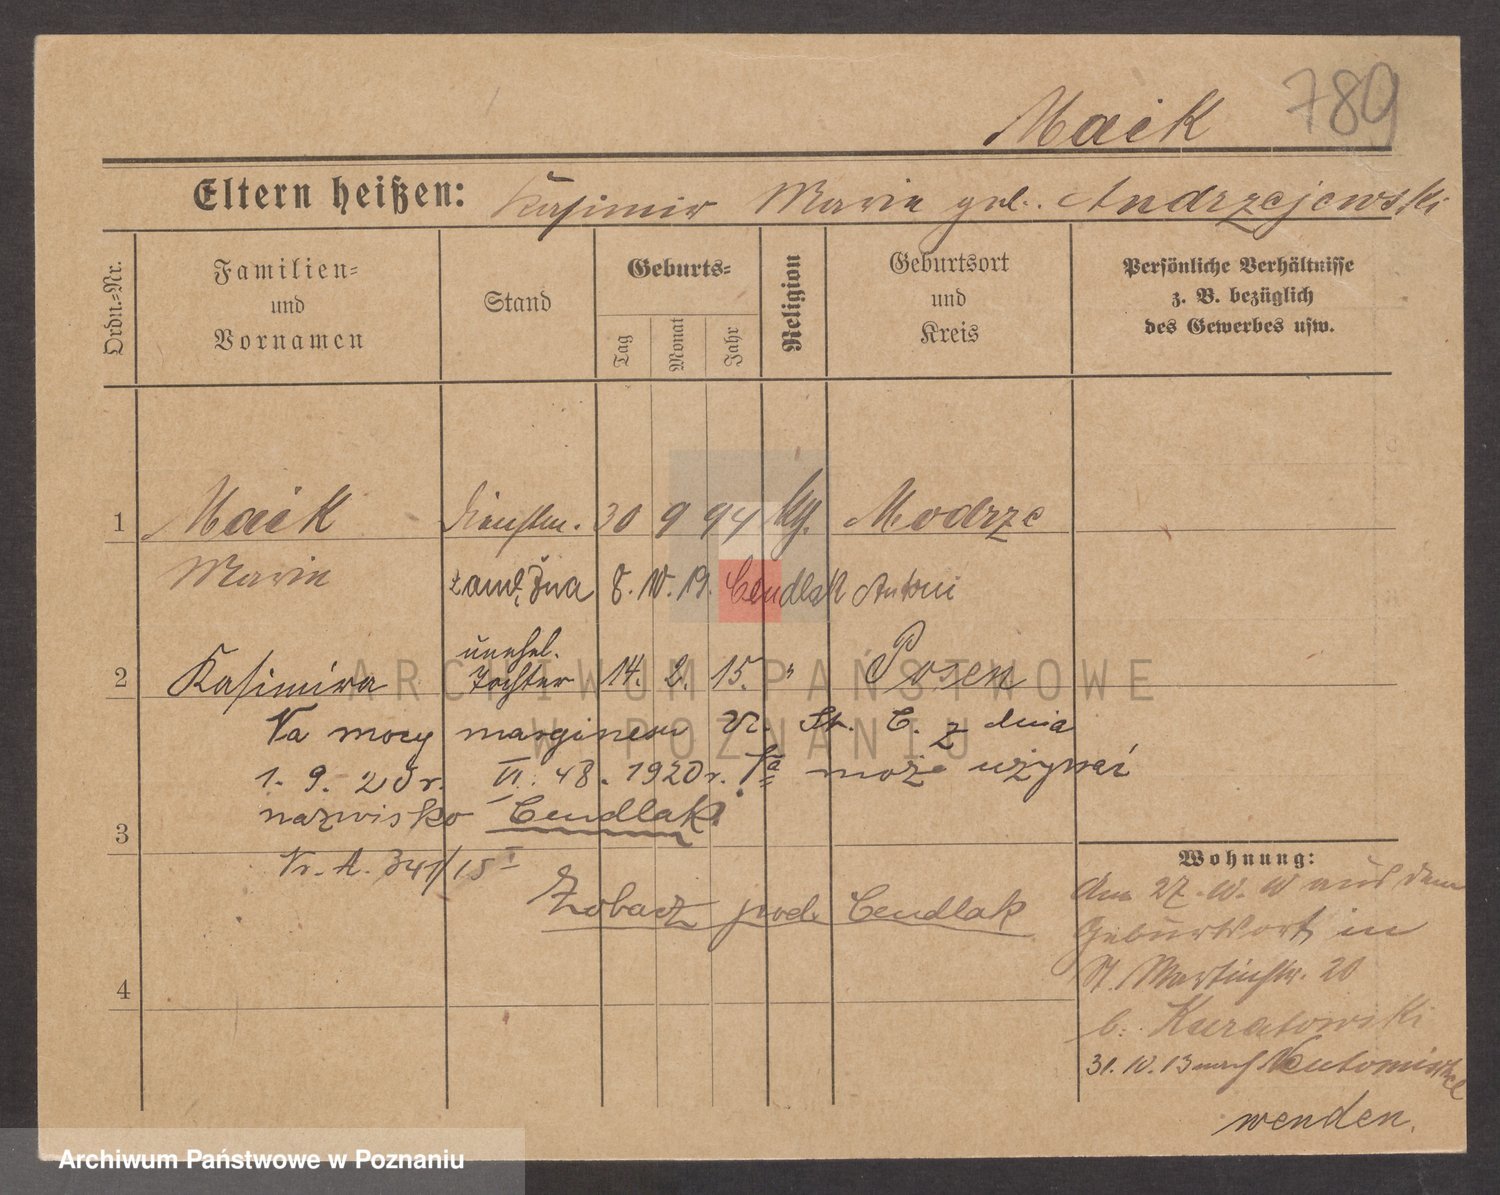 789
Maik
Eltern heißen: Kasimir Marie geb. Andrzejewski
Ordn.-Nr.
Familien-
und
Vornamen
Stand
Geburts-
Tag
Monat
Jahr
Religion
Geburtsort
und
Kreis
Persönliche Verhältnisse
z. B. bezüglich
des Gewerbes usw.
1 Maik 30 9 94 Modrze
Marie zamężna 8. IV. 19. Cendlak Antoni
unehel.
2 Kasimira Tochter 14. 2. 15. " Posen
Na mocy marginesu St. C. z dnia
1. 9. 20 r. VI. 48. 1920 r. może używać
nazwisko Cendlak.
3
Nr. A. 341/15
Zobacz pod Cendlak
4
Wohnung:
aus dem
Geburtsort in
St. Martinstr. 20
b.
31. 10. 13 nach
wenden.
ARCHIWUM PAŃSTWOWE
W POZNANIU
Archiwum Państwowe w Poznaniu